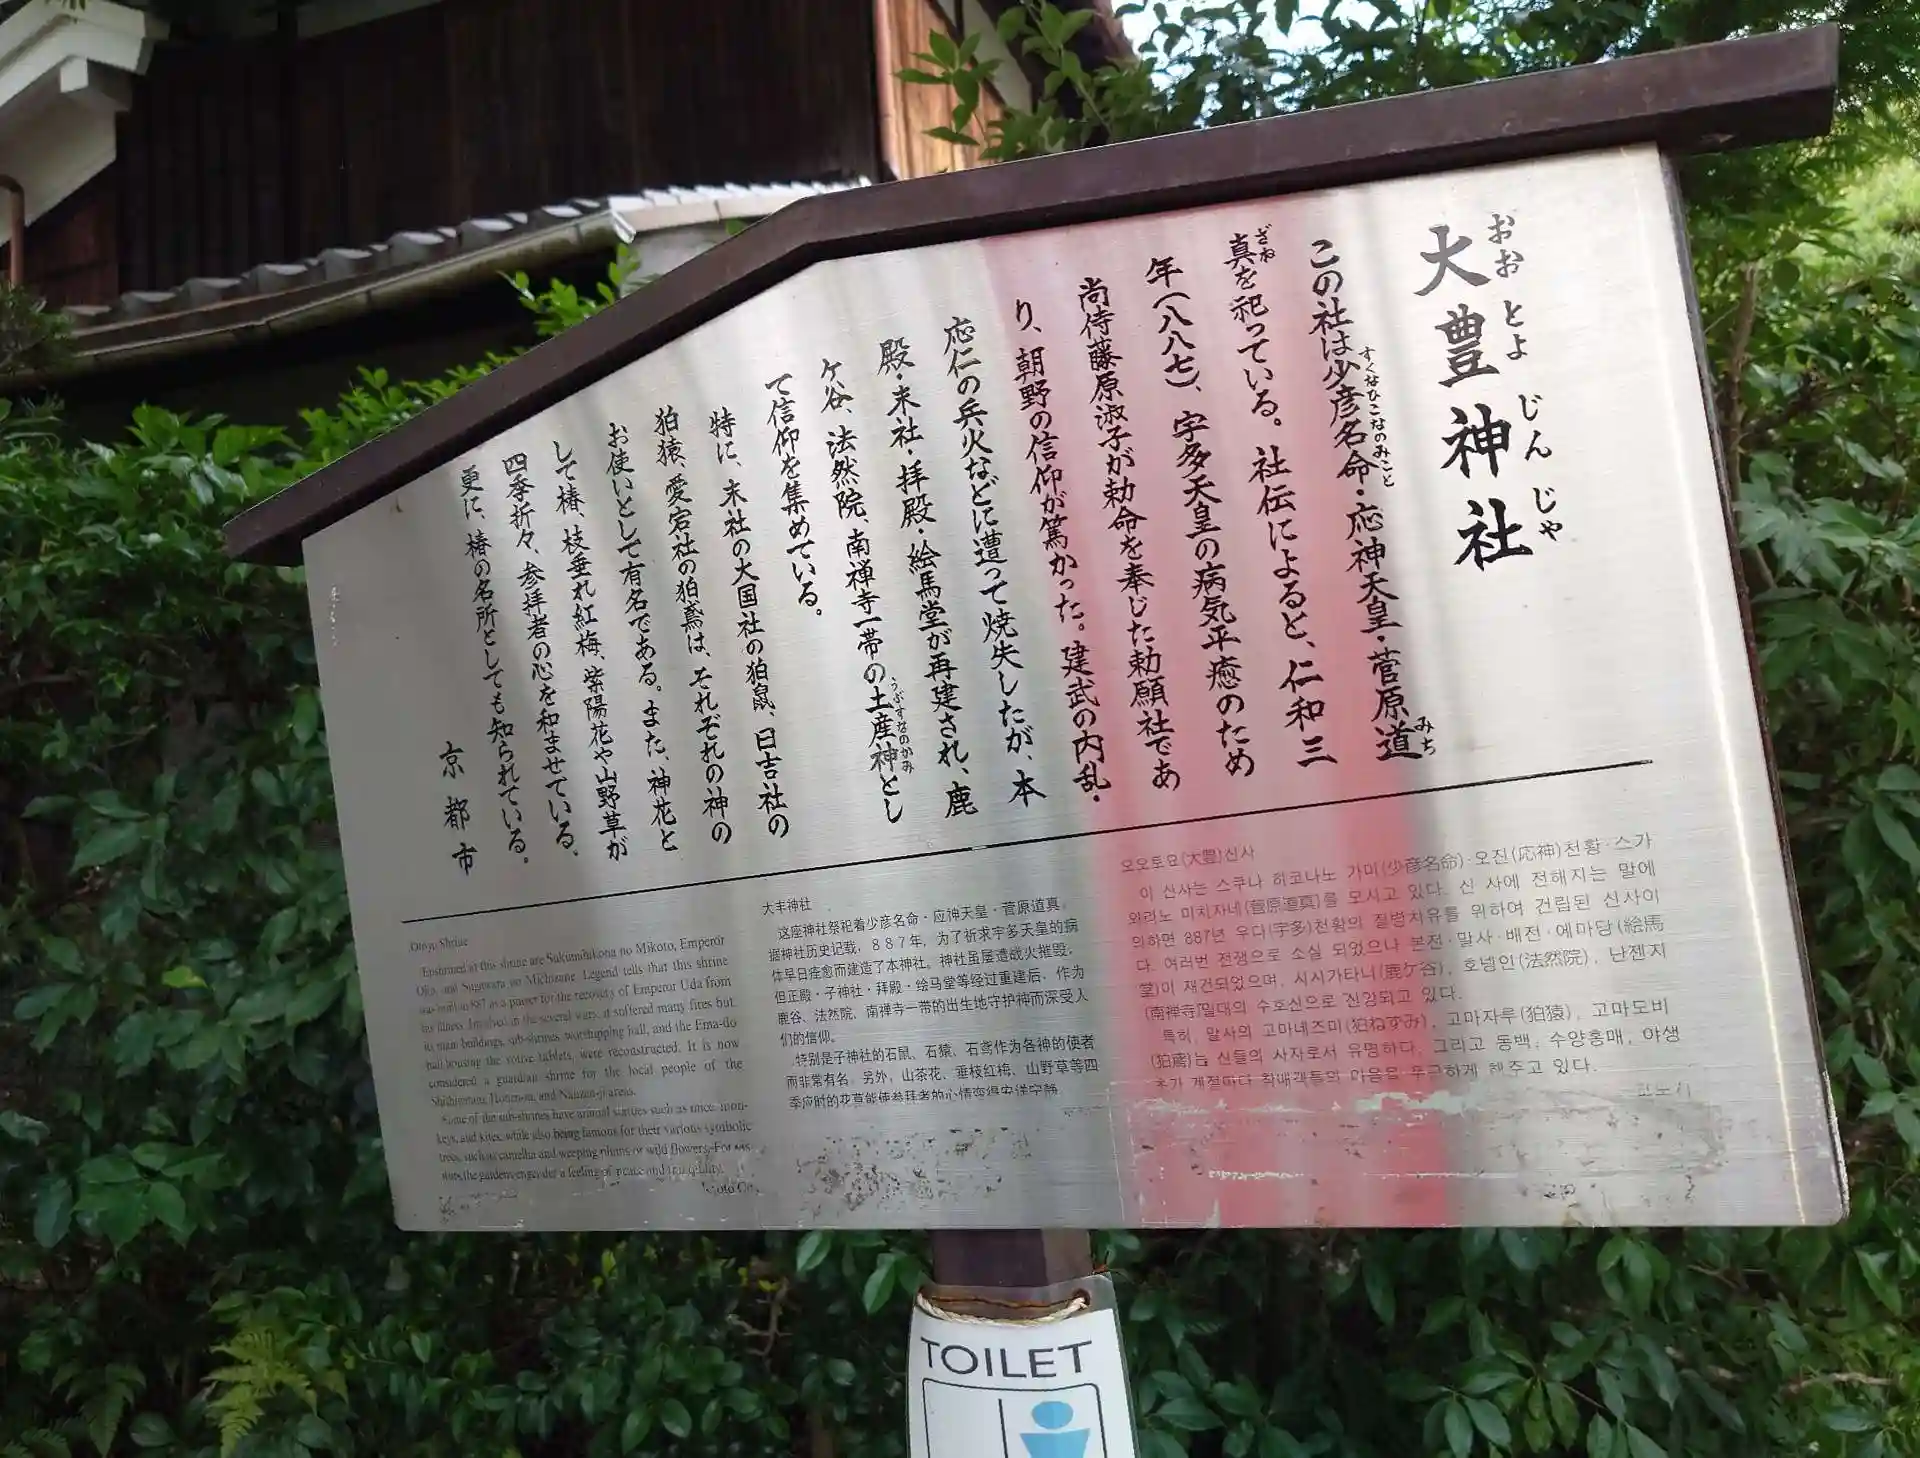 大豊神社
おおとよじんじゃ
この社は少彦名命・応神天皇・菅原道
すくなひこなのみこと
みち
真を祀っている。社伝によると、仁和三
ざね
年(八八七)、宇多天皇の病気平癒のため
尚侍藤原淑子が勅命を奉じた勅願社であ
り、朝野の信仰が篤かった。建武の内乱・
応仁の兵火などに遭って焼失したが、本
殿・末社・拝殿・絵馬堂が再建され、鹿
ケ谷、法然院、南禅寺一帯の土産神とし
うぶすなのかみ
て信仰を集めている。
特に、末社の大国社の狛鼠、日吉社の
狛猿、愛宕社の狛鳶は、それぞれの神の
お使いとして有名である。また、神花と
して椿、枝垂れ紅梅、紫陽花や山野草が
四季折々、参拝者の心を和ませている。
更に、椿の名所としても知られている。
京都市
Enshrined at this shrine are Sukumihikona no Mikoto, Emperor
Ojin, and Sugawara no Michizane. Legend tells that this shrine
was built in 887 as a prayer for the recovery of Emperor Uda from
his illness. Involved in the several wars, it suffered many fires but
its main buildings, sub-shrines, worshipping hall, and the Ema-do
hall housing the votive tablets, were reconstructed. It is now
considered a guardian shrine for the local people of the
Shishigatani, Honen-in, and Nanzen-ji areas.
Some of the sub-shrines have animal statues such as mice, mon-
keys, and kites, while also being famous for their various symbolic
trees, such as camellia and weeping plums or wild flowers. For
the garden engender a feeling of peace and tranquility.
大丰神社
这座神社祭祀着少彦名命・应神天皇・菅原道真。
据神社历史记载，８８７年，为了祈求宇多天皇的病
体早日痊愈而建造了本神社。神社虽屡遭战火摧毁，
但正殿・子神社・拜殿・绘马堂等经过重建后，作为
鹿谷、法然院、南禅寺一带的出生地守护神而深受人
们的信仰。
特别是子神社的石鼠、石猿、石鸢作为各神的使者
而非常有名。另外，山茶花、垂枝红梅、山野草等四
季应时的花草能使参拜者的心情变得安详宁静。
오오토요(大豊)신사
이 신사는 스쿠나 히코나노 가미(少彦名命)·오진(応神)천황·스가
와라노 미치자네(菅原道真)를 모시고 있다. 신 사에 전해지는 말에
의하면 887년 우다(宇多)천황의 질병치유를 위하여 건립된 신사이
다. 여러번 전쟁으로 소실 되었으나 본전·말사·배전·에마당(絵馬
堂)이 재건되었으며, 시시가타니(鹿ケ谷), 호넨인(法然院), 난젠지
(南禅寺)일대의 수호신으로 신앙되고 있다.
특히, 말사의 고마네즈미(狛ねずみ), 고마자루(狛猿), 고마도비
(狛鳶)는 신들의 사자로서 유명하다. 그리고 동백, 수양홍매, 야생
초가 계절마다 참배객들의 마음을 푸근하게 해주고 있다.
교토시
TOILET